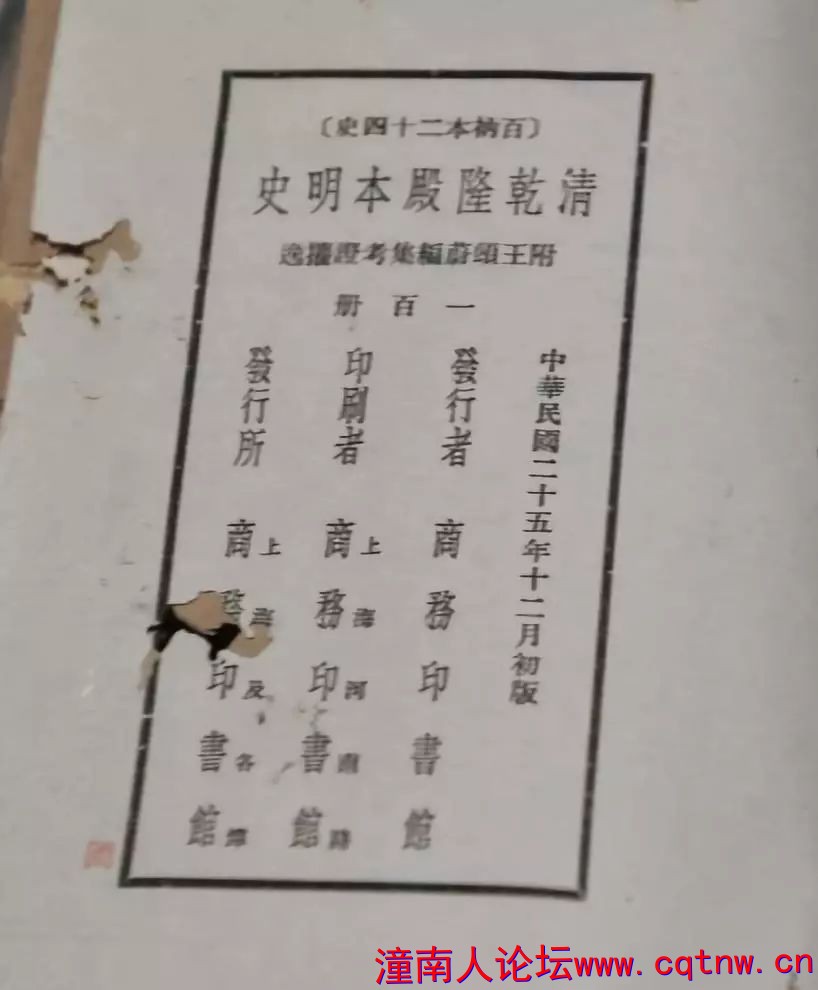 〔百衲本二十四史〕
清乾隆殿本明史
附王頌蔚編集考證攟逸
一百册
中華民國二十五年十二月初版
發行者 商務印書館
印刷者 上海河南路 商務印書館
發行所 上海及各埠 商務印書館
潼南人论坛www.cqtnw.cn